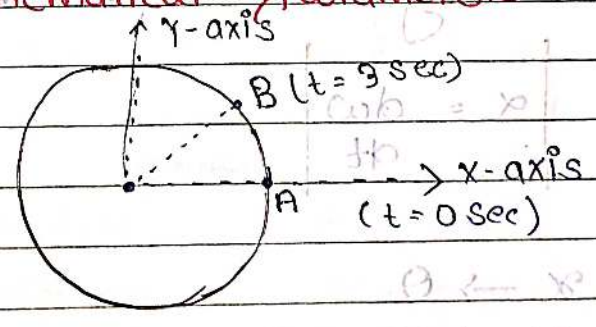 Y-axis
B (t = 3 sec)
X-axis
A
(t = 0 sec)